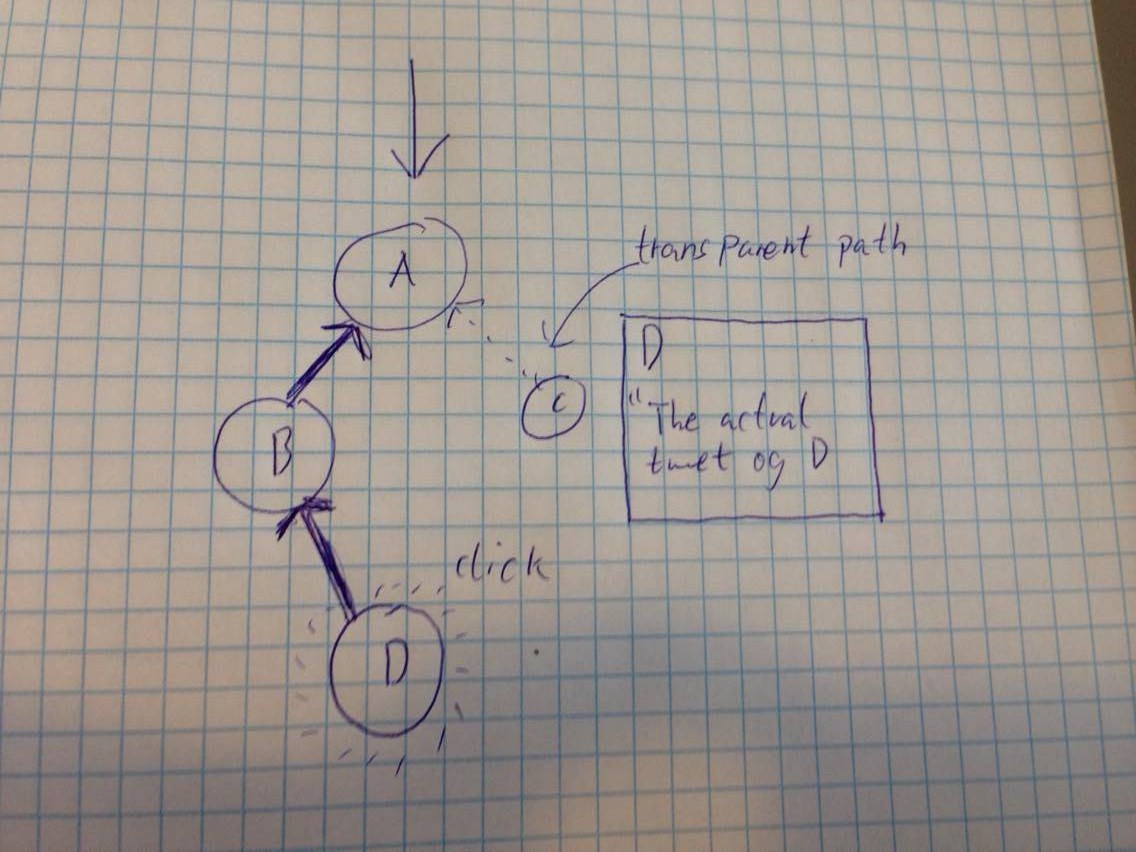 A
transparent path
C
D
"The actual
tweet og D
B
click
D